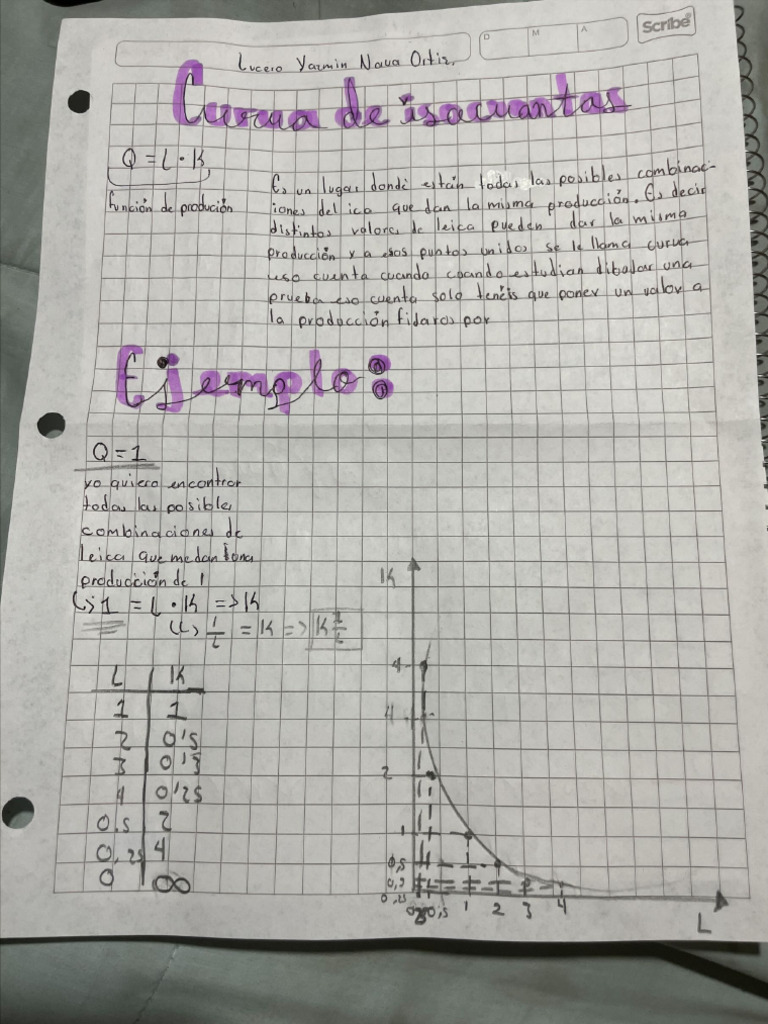 Scribe
D M A
Lucero Yazmin Nava Ortiz.
Curva de isacuantas
Q = L · K
función de produción
Es un lugar donde están todas las posibles combinac-
iones del ica que dan la misma producción. Es decir
distintos valores de leica pueden dar la misma
producción y a esos puntos unidos se le llama curva
uso cuenta cuando cuando estudian dibadar una
prueba eso cuenta solo tenéis que poner un valor a
la producción fidaros por
Ejemplo:
Q = 1
yo quiero encontrar
todas las posibles
combinaciones de
leica que me dan una
producción de 1
1 = L · K => K
1/L = K => K
L K
1 1
2 0'5
3 0'3
4 0'25
0.5 2
0,25 4
0 ∞
K
4
2
1
0,5
0,25
0,5 1 2 3 4
L